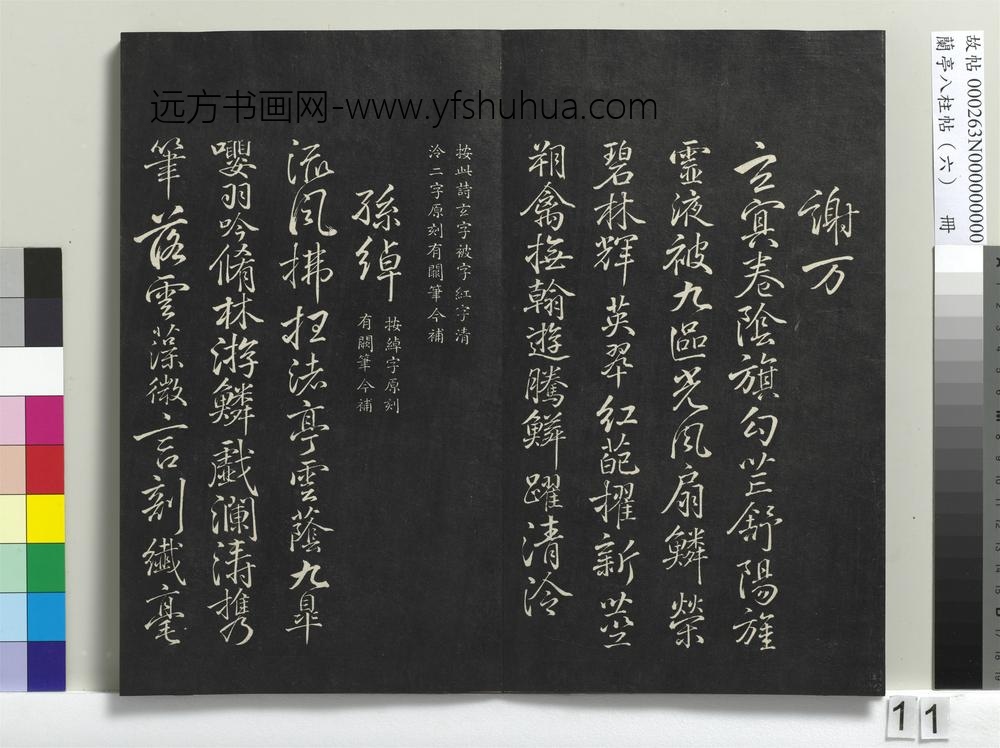 謝万
玄冥卷陰旗勾芒舒陽旌
靈液被九區光風扇鱗榮
碧林輝英翠紅葩擢新莖
翔禽撫翰遊騰鱗躍清泠
按此詩玄字被字紅字清
泠二字原刻有闕筆今補
孫綽
按綽字原刻
有闕筆今補
流風拂枉渚亭雲蔭九皐
嚶羽吟脩林游鱗戲瀾濤
攜筆落雲藻微言剖纖毫
远方书画网-www.yfshuhua.com
故帖 000263N000000000
蘭亭八柱帖（六） 冊
11